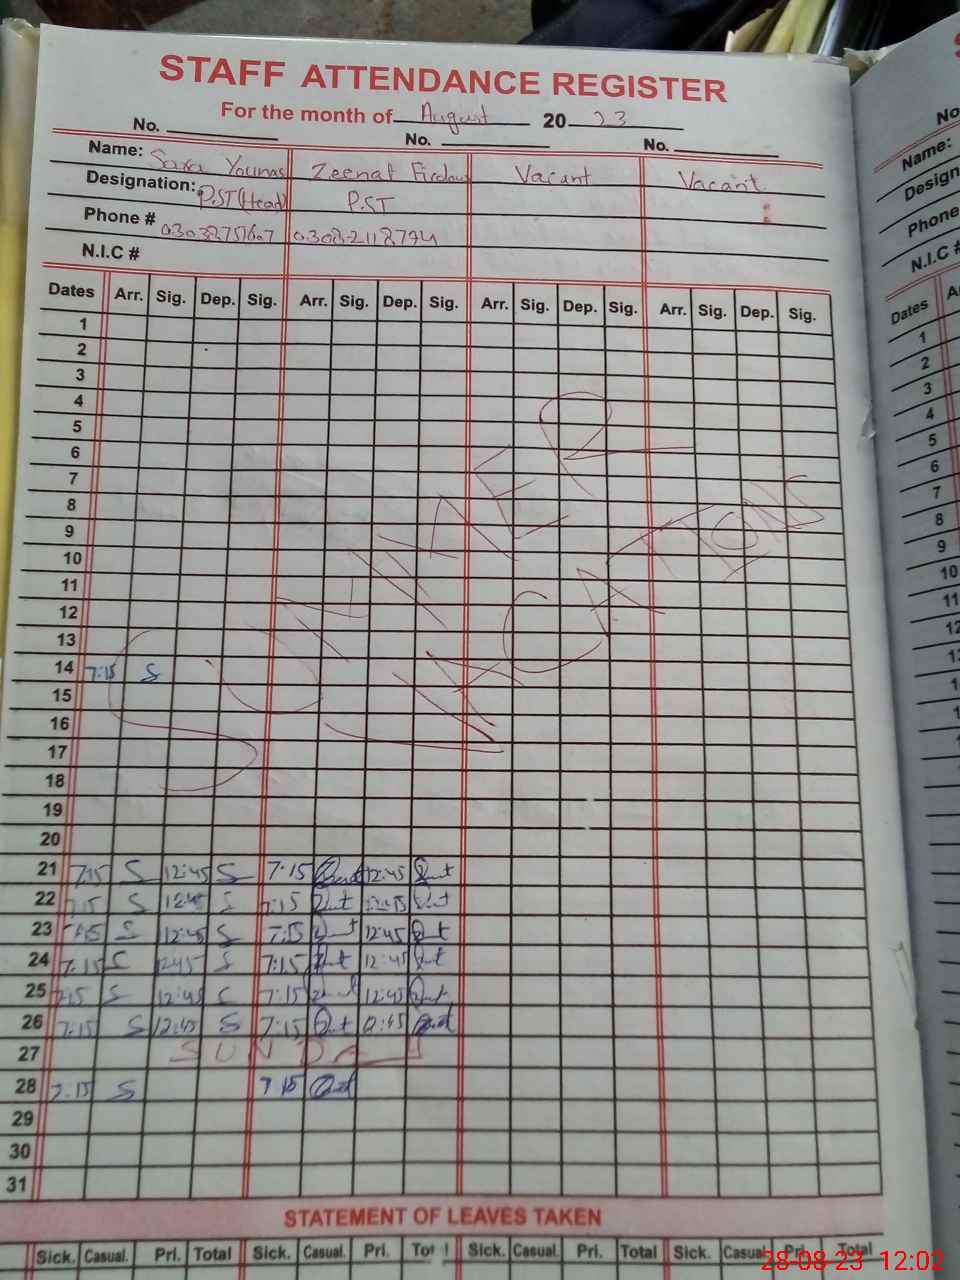 STAFF ATTENDANCE REGISTER
For the month of August 20 23
No. No. No.
Name: Sara Younas Zeenat Firdous Vacant Vacant
Designation: P.ST (Head) P.ST
Phone #
N.I.C #
Dates Arr. Sig. Dep. Sig. Arr. Sig. Dep. Sig. Arr. Sig. Dep. Sig. Arr. Sig. Dep. Sig.
1
2
3
4
5
6
7
8
9
10
11
12
13
14 7:15 S
15
16
17
18
19
20
SUMMER
VACATIONS
21 7:15 S 12:45 S 7:15 12:45
22 7:15 S 12:45 S 7:15 12:45
23 7:15 S 12:45 S 7:15 12:45
24 7:15 S 12:45 S 7:15 12:45
25 7:15 S 12:45 S 7:15 12:45
26 7:15 S 12:45 S 7:15 12:45
27 SUNDAY
28 7:15 S 7:15
29
30
31
STATEMENT OF LEAVES TAKEN
Sick. Casual. Pri. Total Sick. Casual. Pri. Sick. Casual. Pri. Total Sick. Casual. Pri. Total
28-08-23 12:02
No.
Name:
Design
Phone
N.I.C #
Dates
1
2
3
4
5
6
7
8
9
10
11
12